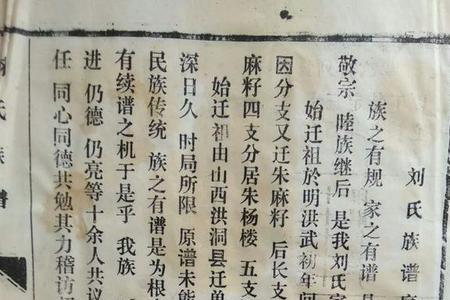 刘氏族谱
族之有规 家之有谱
敬宗 睦族继后 是我刘氏家
始迁祖於明洪武初年间
因分支又迁朱麻籽 后长支
麻籽四支分居朱杨楼 五支
始迁祖由山西洪洞县迁单
深日久 时局所限 原谱未能
民族传统 族之有谱是为根
有续谱之机于是乎 我族
进 仍德 仍亮等十余人共议
任 同心同德共勉其力稽访
氏族谱